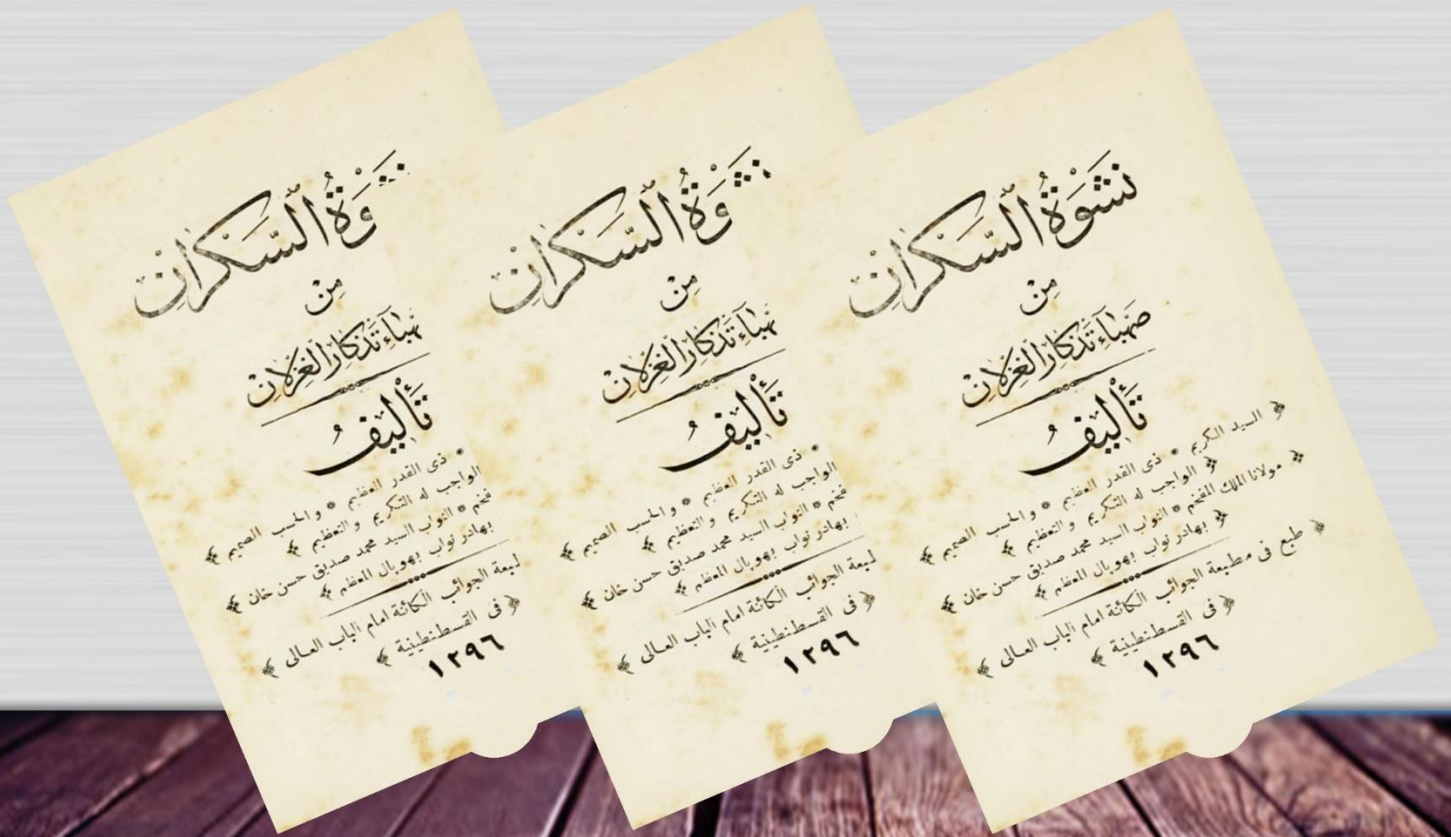 نَشْوَةُ السَّكْرَانِ
مِنْ
صَهْبَآءِ تَذْكَارِ الْغِزْلَانِ
تَأْلِيفُ
﴿ السيد الكريم * ذى القدر العظيم * والحسب الصميم ﴾
﴿ الواجب له التكريم والتعظيم ﴾
﴿ مولانا الملك المفخم * النواب السيد محمد صديق حسن خان ﴾
﴿ بهادر نواب بهوپال المعظم ﴾
﴿ طبع فى مطبعة الجوائب الكائنة امام الباب العالى ﴾
﴿ فى القسطنطينية ﴾
١٢٩٦
السَّكْرَانِ
مِنْ
تَذْكَارِ الْغِزْلَانِ
تَأْلِيفُ
* ذى القدر العظيم * والحسب الصميم ﴾
الواجب له التكريم والتعظيم ﴾
* النواب السيد محمد صديق حسن خان ﴾
بهادر نواب بهوپال المعظم ﴾
الجوائب الكائنة امام الباب العالى ﴾
﴿ فى القسطنطينية ﴾
١٢٩٦
السَّكْرَانِ
مِنْ
تَذْكَارِ الْغِزْلَانِ
تَأْلِيفُ
* ذى القدر العظيم * والحسب الصميم ﴾
الواجب له التكريم والتعظيم ﴾
* النواب السيد محمد صديق حسن خان ﴾
بهادر نواب بهوپال المعظم ﴾
الجوائب الكائنة امام الباب العالى ﴾
﴿ فى القسطنطينية ﴾
١٢٩٦